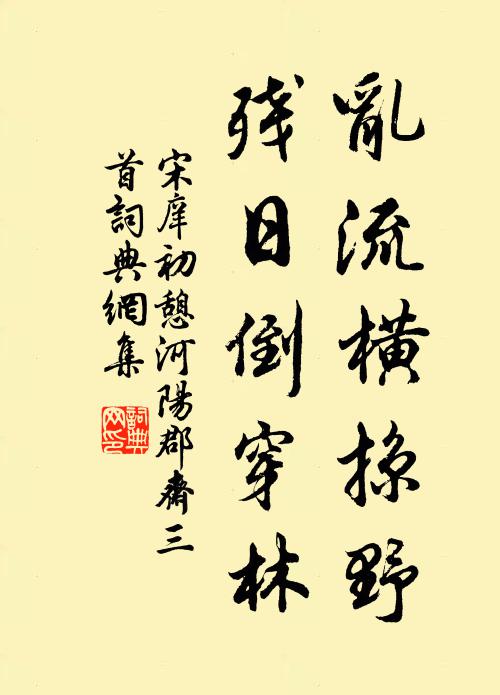 亂流橫掠野
残日倒穿林
宋庠初憩河陽郡齋三
首詞典網集
詞典
网印